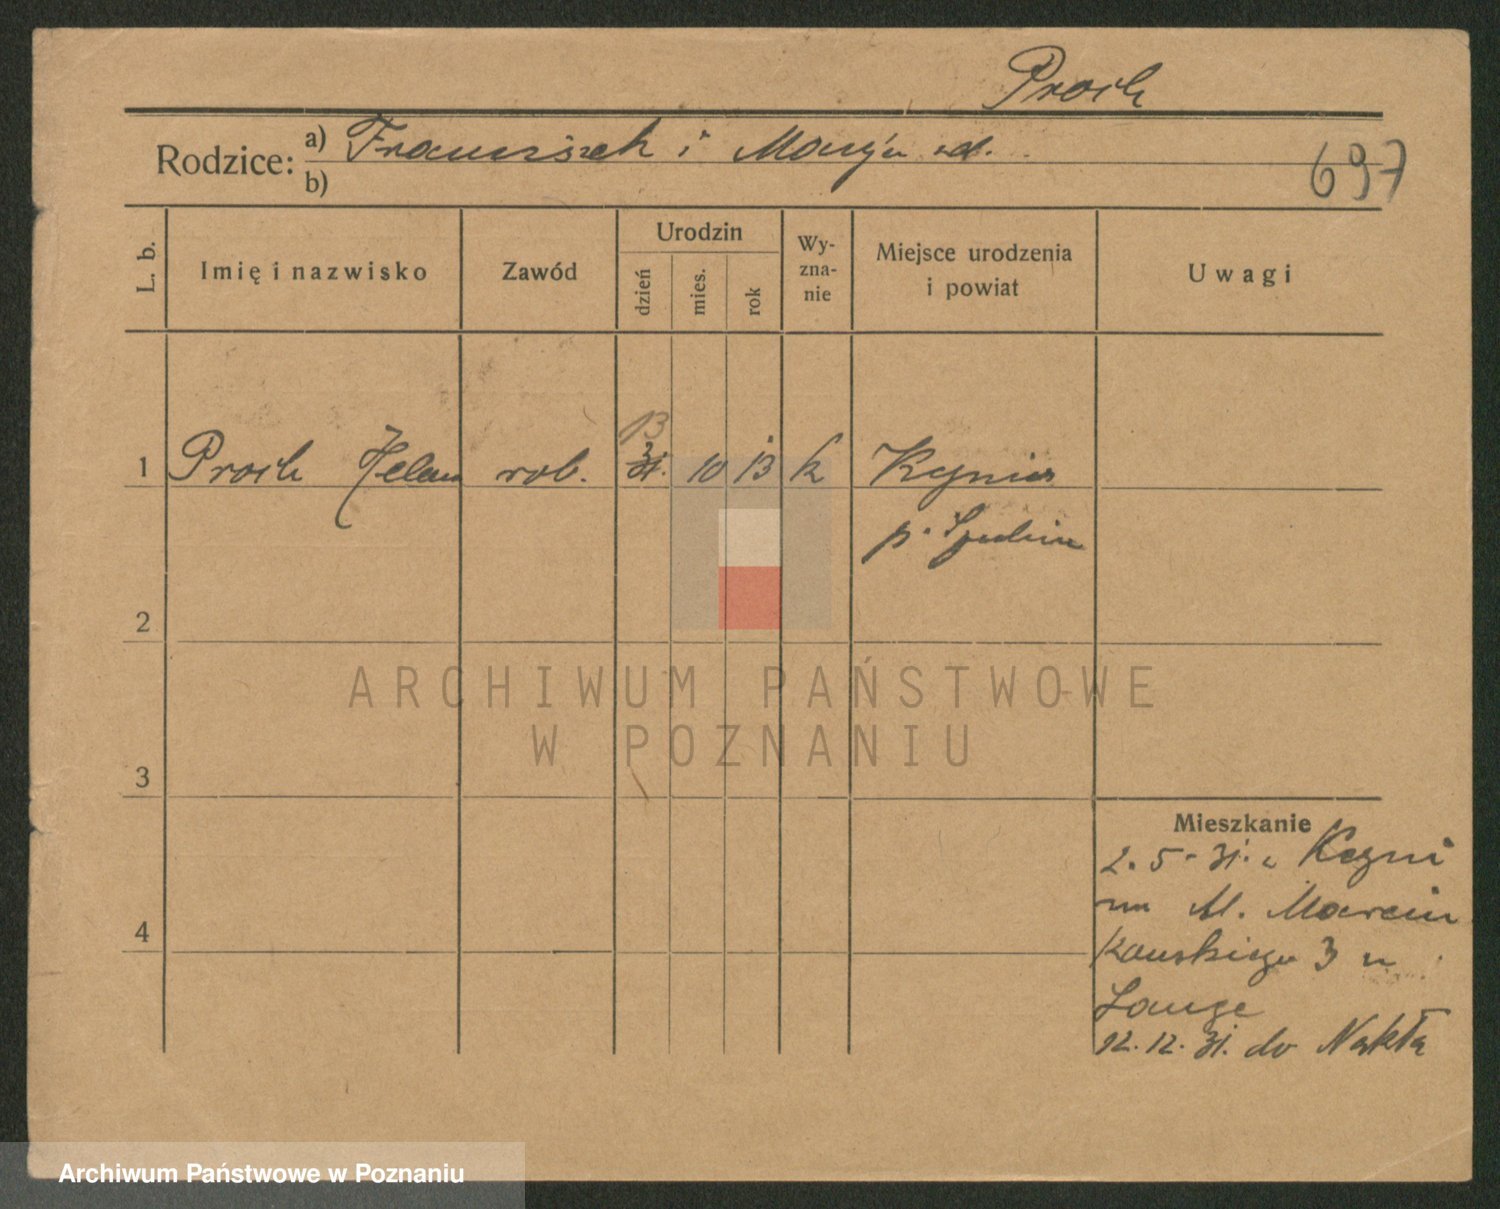 Proch
Rodzice: a) Franciszek i Marja
b)
697
L. b.
Imię i nazwisko
Zawód
Urodzin
dzień
mies.
rok
Wy-
zna-
nie
Miejsce urodzenia
i powiat
Uwagi
1 Proch Helena rob. 31. 10 13 k Kcynia
13
p. Szubin
2
3
4
Mieszkanie
2. 5. 31. z Kcyni
na M. Marcin
kowskiego 3 u
Lange
12. 12. 31. do Nakła
ARCHIWUM PAŃSTWOWE
W POZNANIU
Archiwum Państwowe w Poznaniu